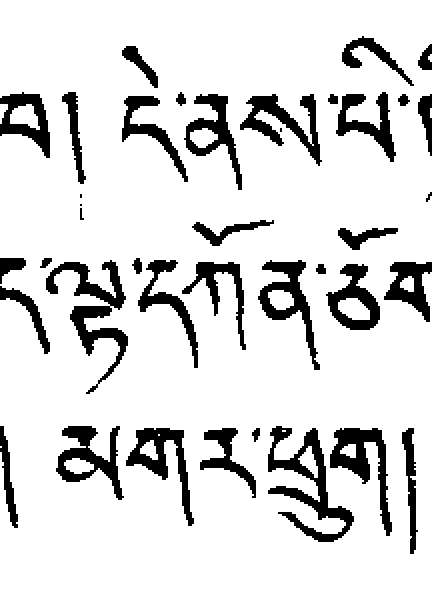 བ། དེ་ནས་པི་
ད་ལྟ་དཀོན་ཅོག
། མགར་ཕྲུག།